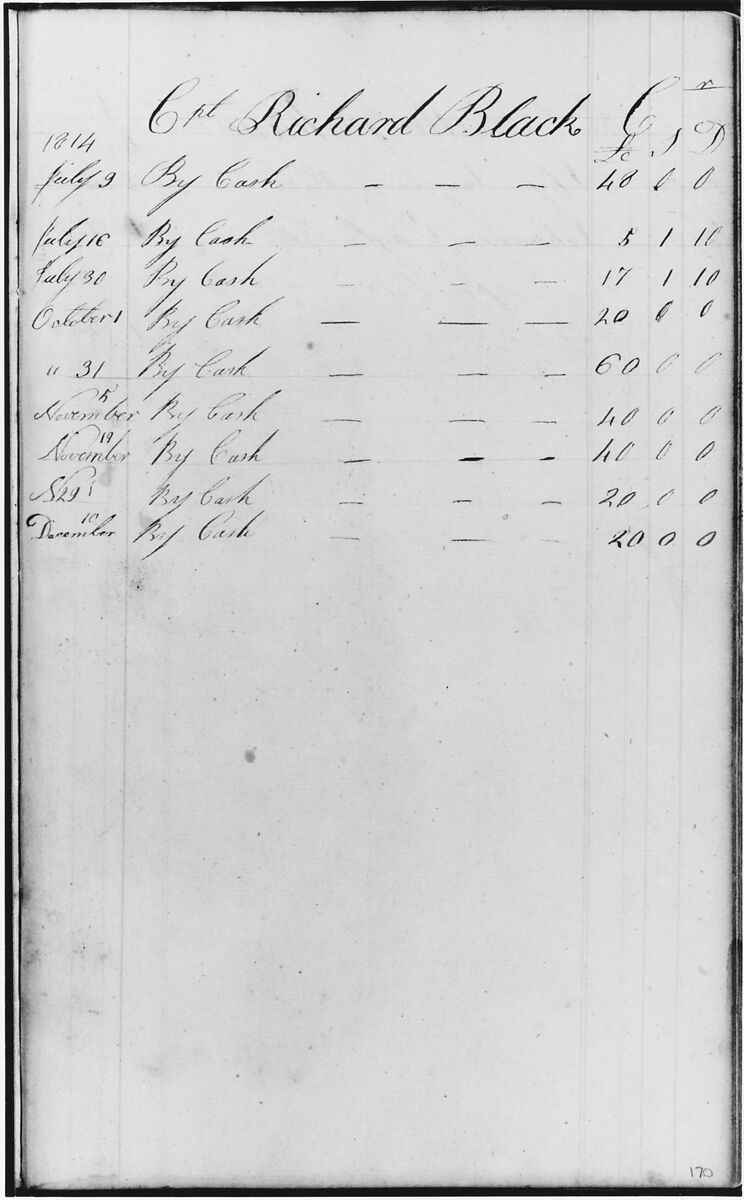 Cpt Richard Black Cr
1814 £ S D
July 9 By Cash — — — 48 0 0
July 16 By Cash — — — 5 1 10
July 30 By Cash — — — 17 1 10
October 1 By Cash — — — 20 0 0
" 31 By Cash — — — 60 0 0
November 5 By Cash — — — 40 0 0
November 19 By Cash — — — 40 0 0
N 29 By Cash — — — 20 0 0
December 10 By Cash — — — 20 0 0
170